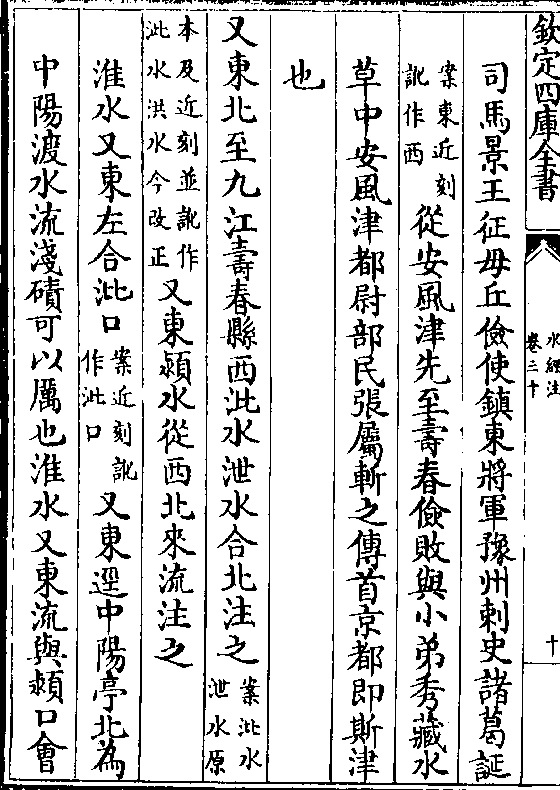 欽定四庫全書
水經注
卷三十
十
司馬景王征毋丘儉使鎮東將軍豫州刺史諸葛誕
案東近刻訛作西從安風津先至壽春儉敗與小弟秀藏水
草中安風津都尉部民張屬斬之傳首京都即斯津
也
又東北至九江壽春縣西沘水泄水合北注之案沘水泄水原
本及近刻並訛作沘水洪水今改正又東潁水從西北來流注之
淮水又東左合沘口案近刻訛作沘口又東逕中陽亭北為
中陽渡水流淺磧可以厲也淮水又東流與潁口會